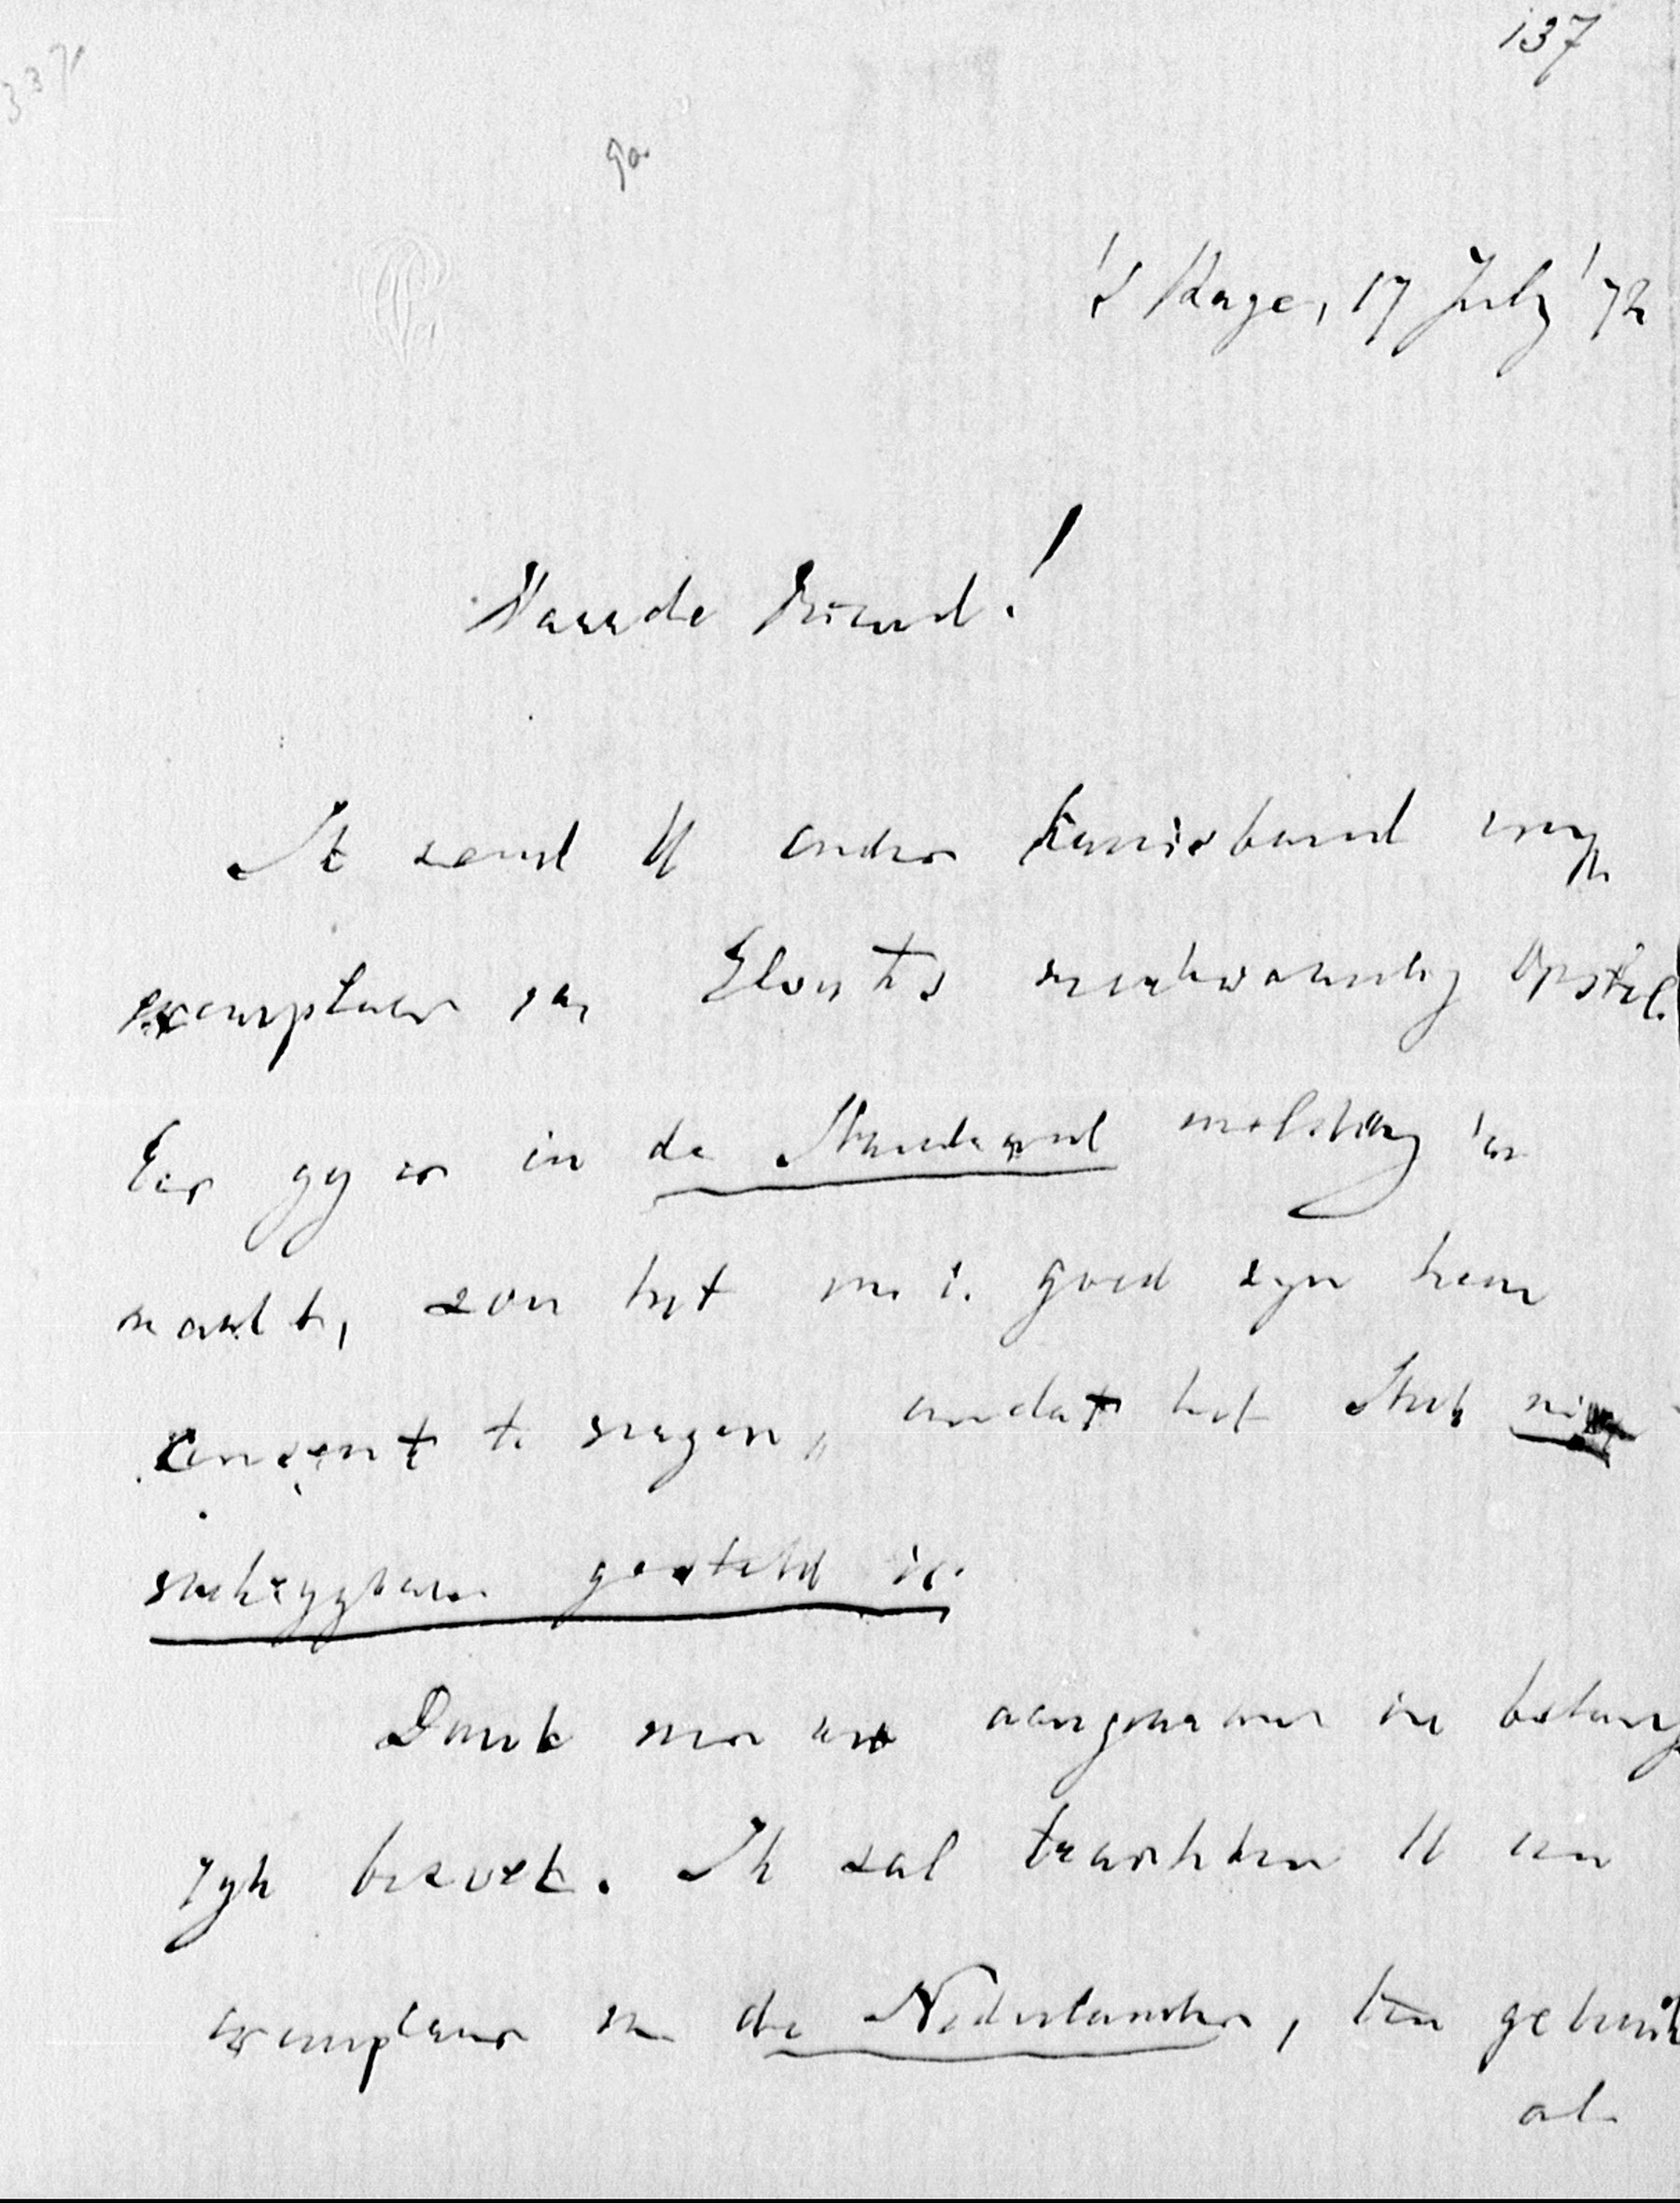 137
337
9a
's Hage, 17 July '72
Waarde Vriend!
Ik zend U onder kruisband myn
exemplaar van Elouts merkwaardig opstel.
Eer gy er in de Standaard melding van
maakt, zou het m.i. goed zyn hem
consent te vragen, omdat het stuk niet
verkrygbaar gesteld is.
Dank voor uw aangenaam en belang
ryk bezoek. Ik zal trachten U een
exemplaar van de Nederlander, ten gebruik
al